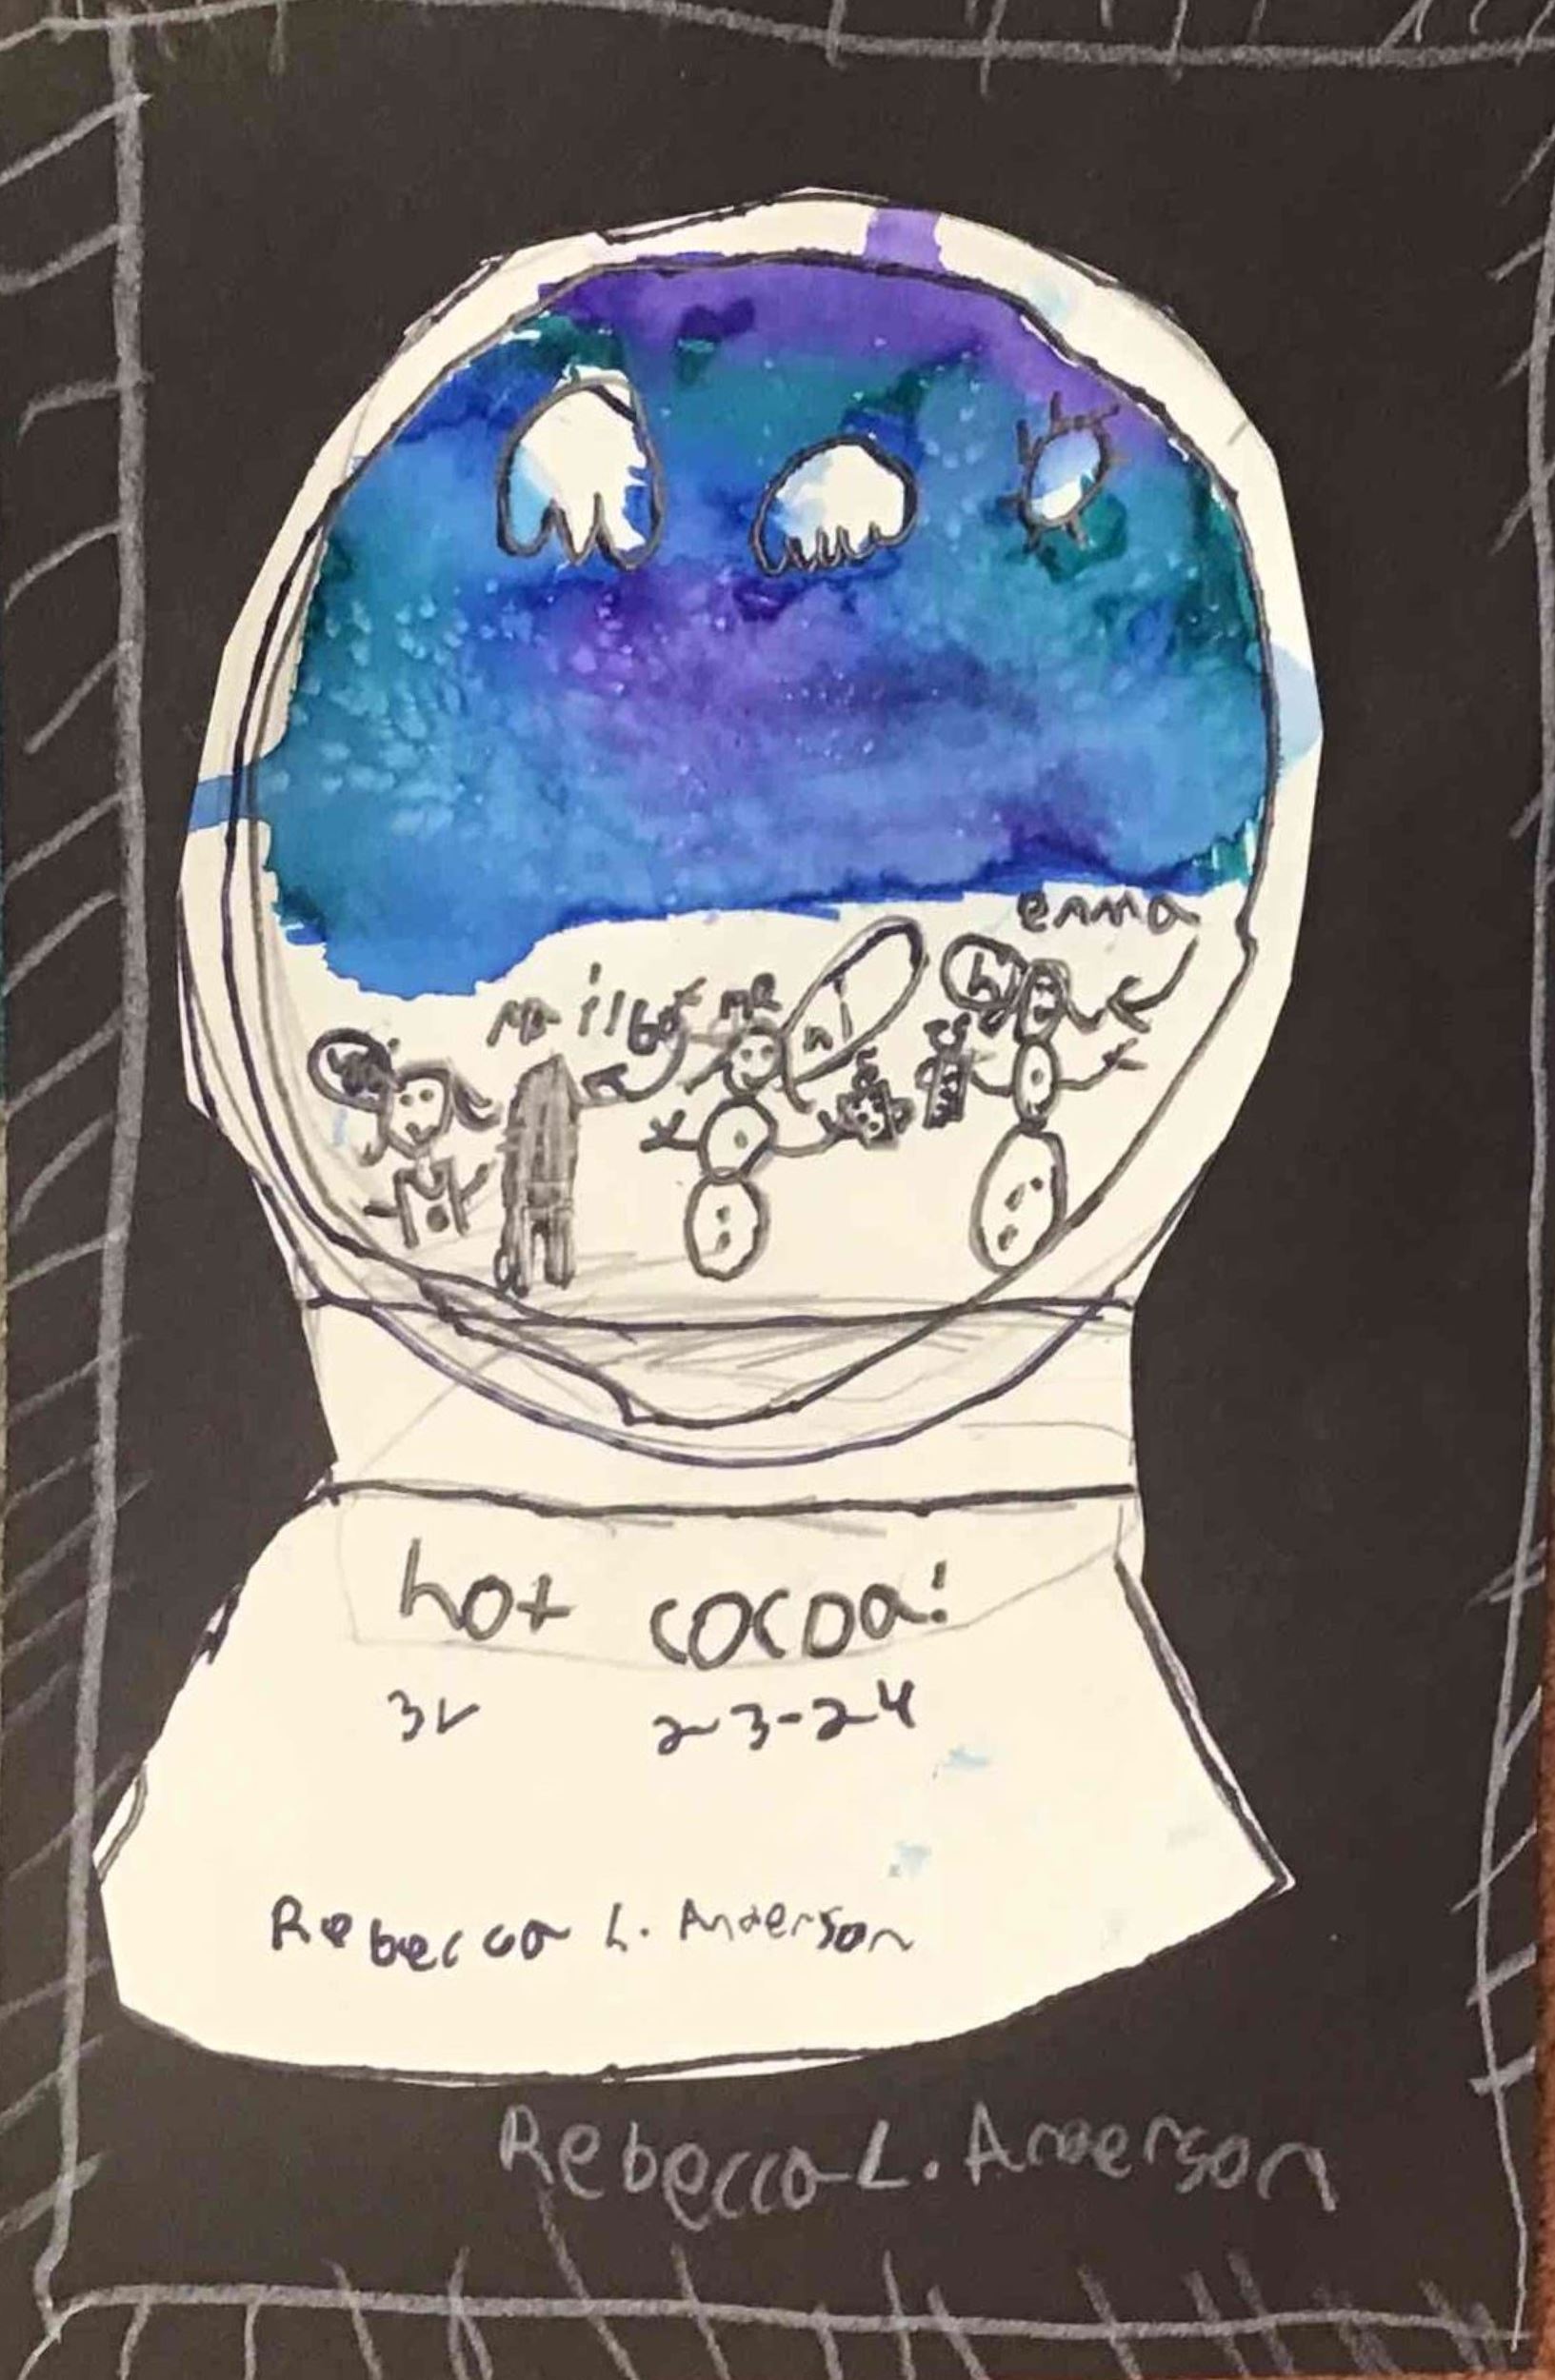 emma
mailbox me
hi
hot cocoa!
3V 2-3-24
Rebecca L. Anderson
Rebecca L. Anderson